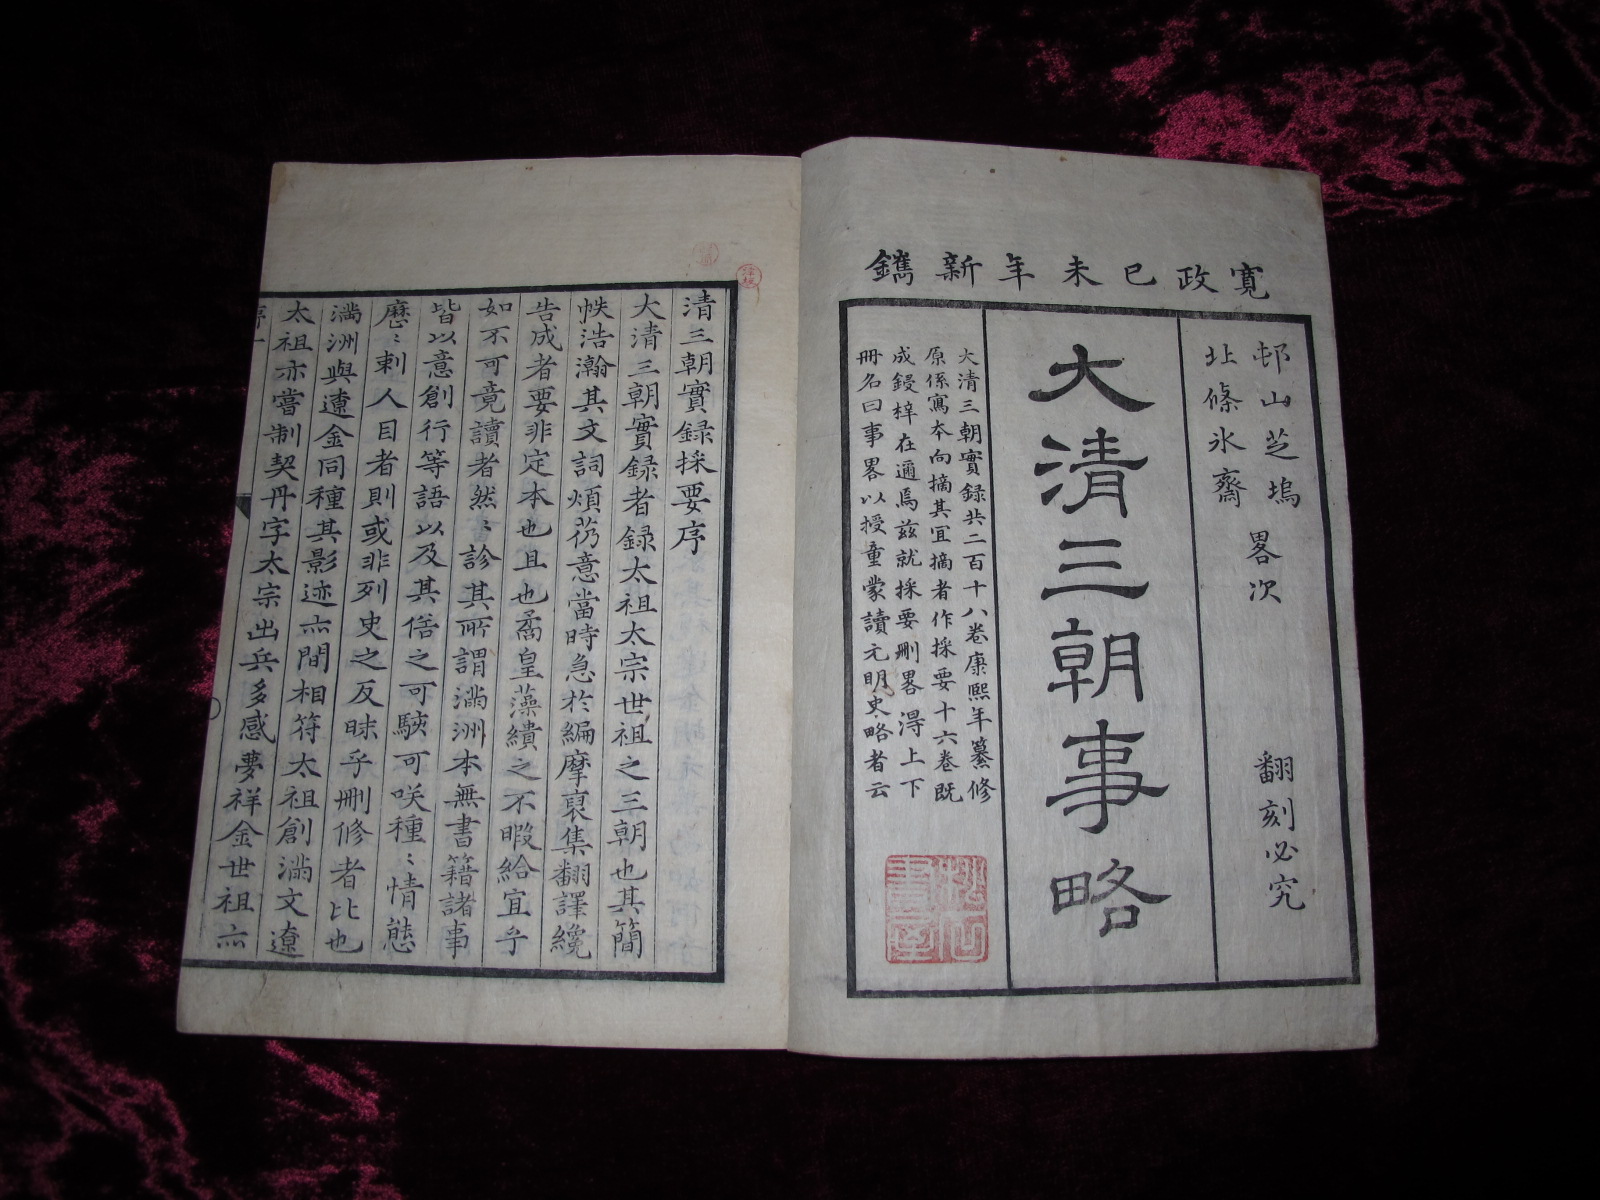 寛政己未年新鐫
邨山芝塢
北條氷齋
畧次
翻刻必究
大清三朝事略
大清三朝實録共二百十八卷康熙年纂修
原係寫本向摘其宜摘者作採要十六卷既
成鋟梓在邇焉茲就採要刪畧得上下
冊名曰事畧以授童蒙讀元明史略者云
清三朝實録採要序
大清三朝實録者録太祖太宗世祖之三朝也其簡
帙浩瀚其文詞煩芿意當時急於編摩裒集翻譯纔
告成者要非定本也且也矞皇藻繢之不暇給宜乎
如不可竟讀者然〻診其所謂滿洲本無書籍諸事
皆以意創行等語以及其偣之可駴可咲種〻情態
歷〻刺人目者則或非列史之反眛乎刪修者比也
滿洲與遼金同種其影迹亦間相符太祖創滿文遼
太祖亦嘗制契丹字太宗出兵多感夢祥金世祖亦
序一